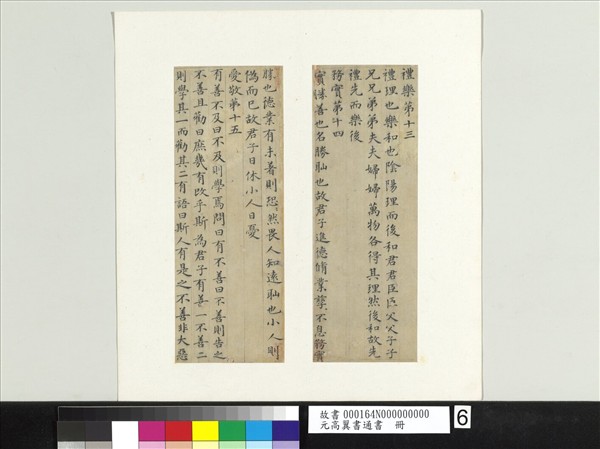 禮樂第十三
禮理也樂和也陰陽理而後和君君臣臣父父子子
兄兄弟弟夫夫婦婦萬物各得其理然後和故先
禮先而樂後
務實第十四
實勝善也名勝恥也故君子進德脩業孳孳不息務實
勝也德業有未著則恐恐然畏人知遠恥也小人則
偽而已故君子日休小人日憂
愛敬第十五
有善不及曰不及則學焉問曰有不善曰不善則告之
不善且勸曰庶幾有改乎斯為君子有善一不善二
則學其一而勸其二有語曰斯人有是之不善非大惡
故書 000164N000000000
元高翼書通書 冊
6